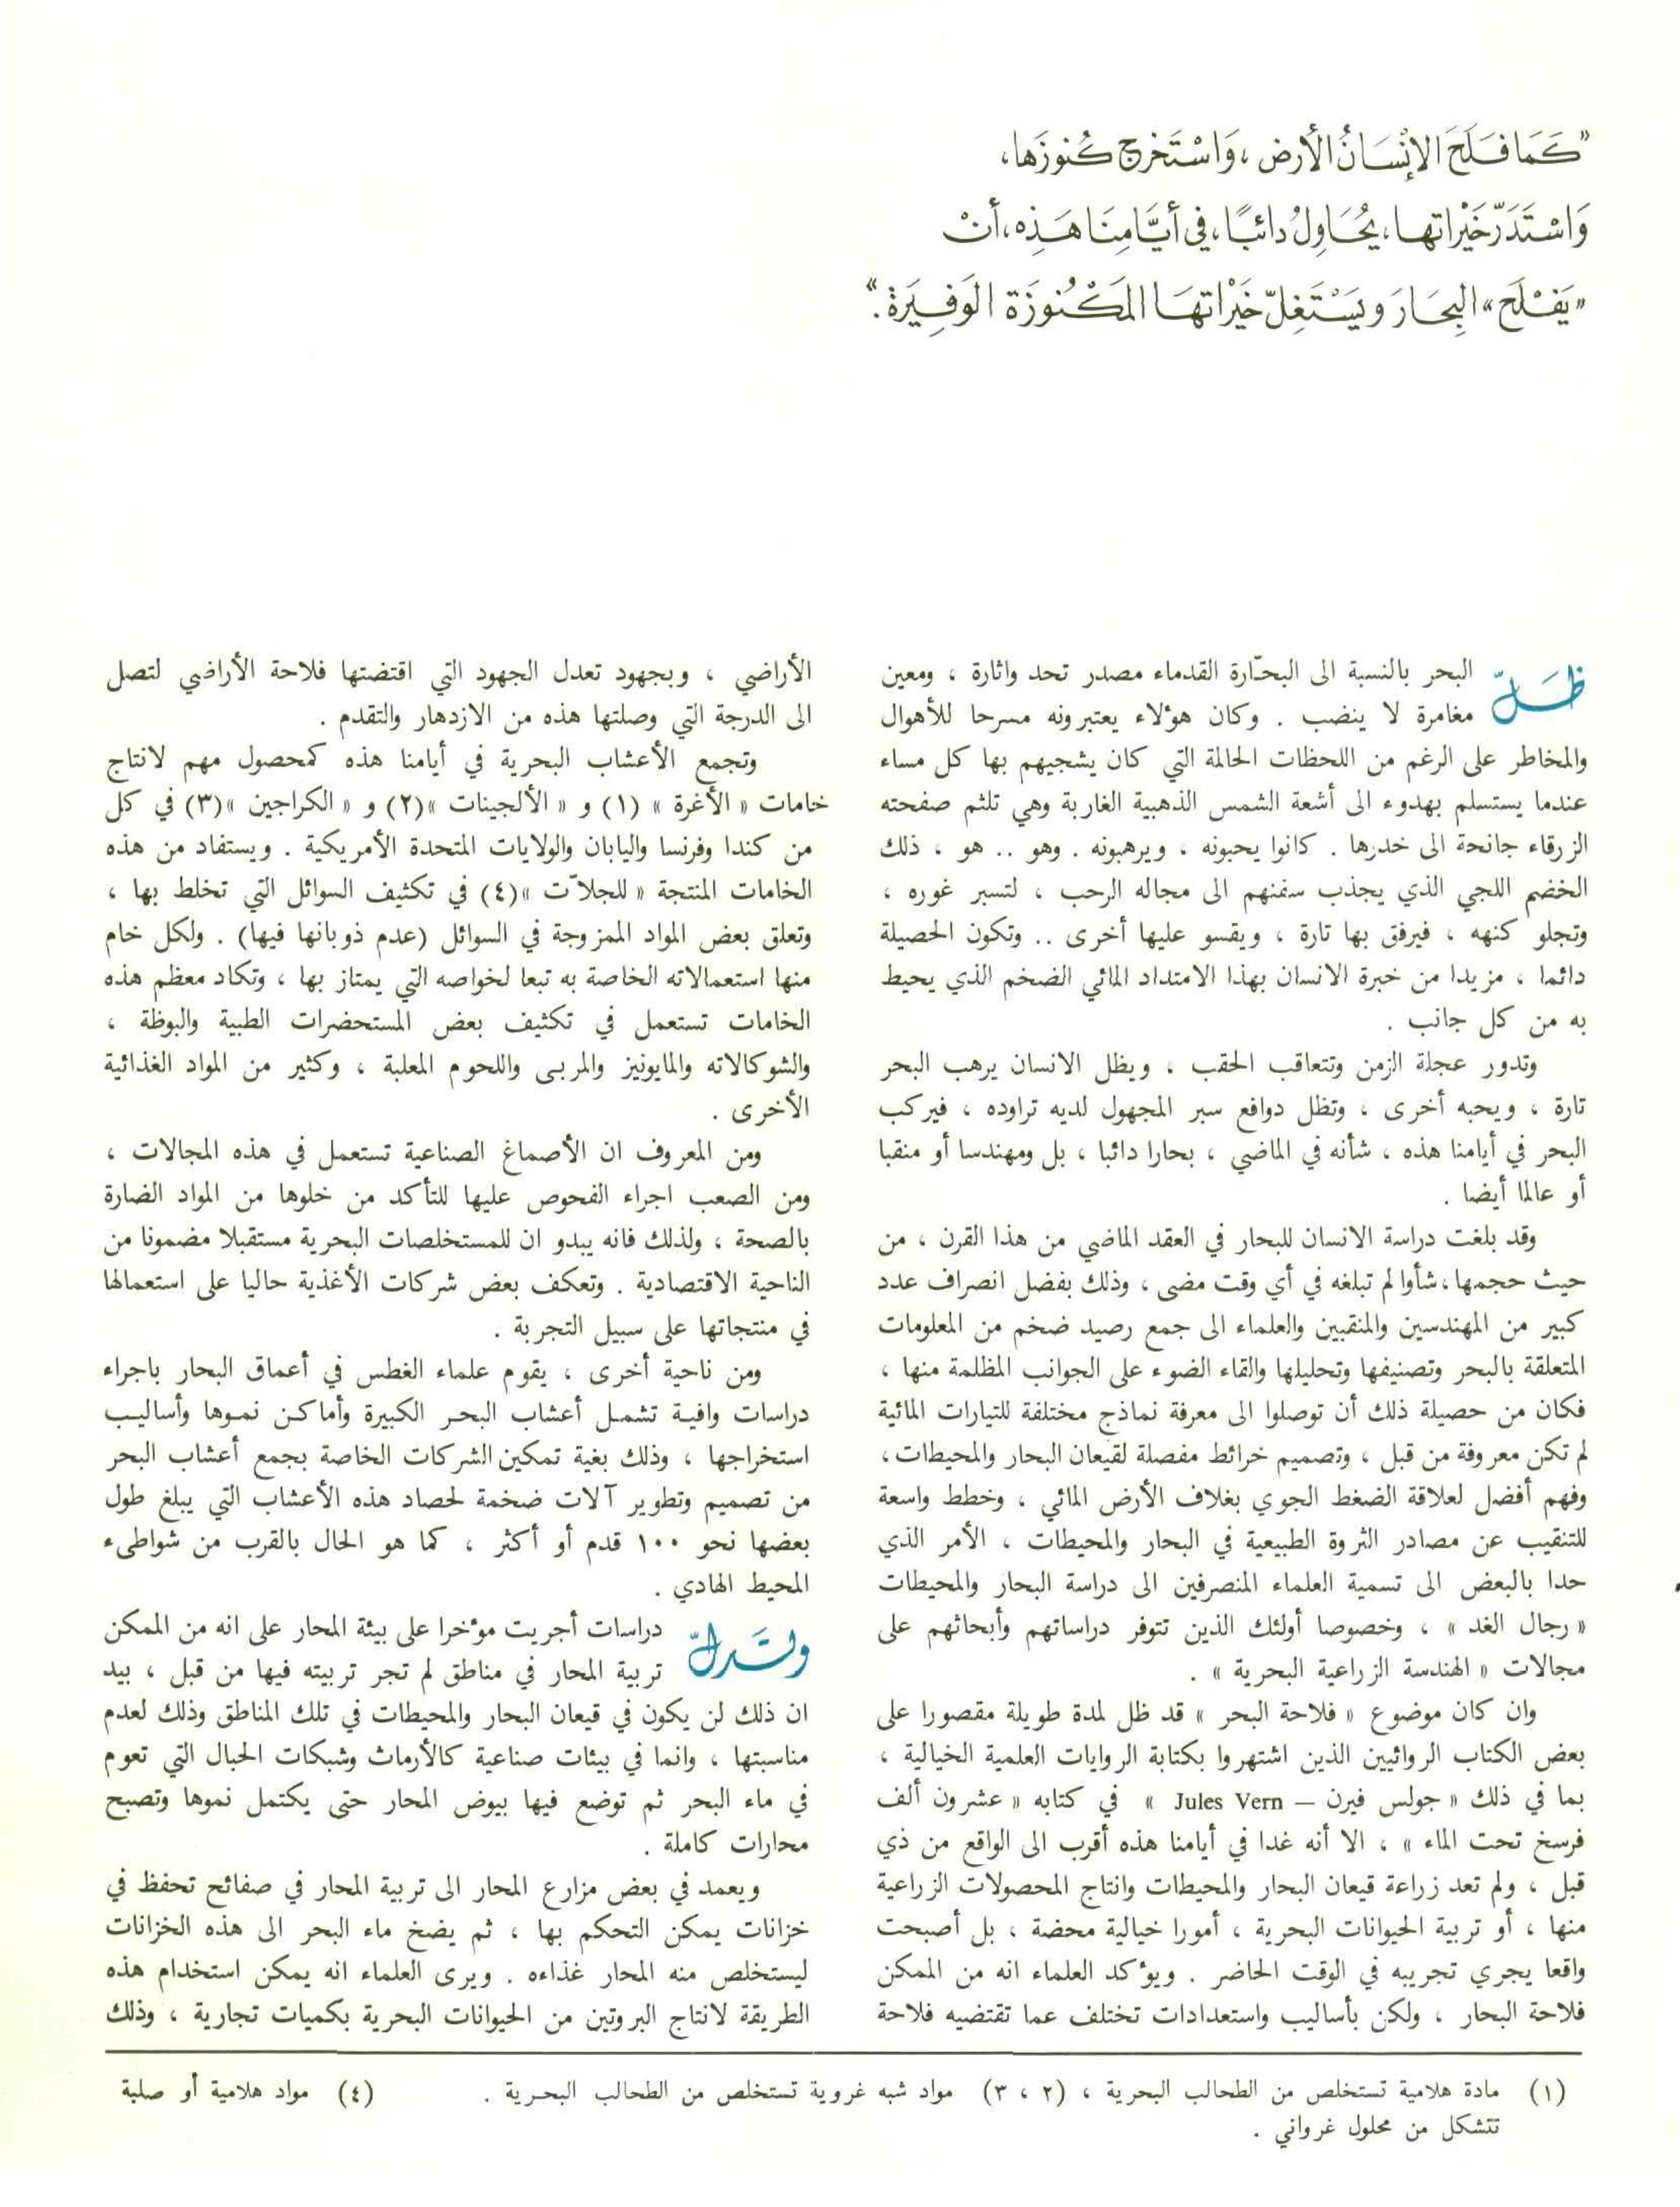 "كَمَا فَلَحَ الإنْسَانُ الأرض ، وَاسْتَخرج كُنوزَها،
وَاسْتَدَرّ خَيْراتها، يُحَاوِلُ دائبًا، في أيَّامِنَا هَذِه، أنْ
«يَفْلَحَ» البِحَارَ ويَسْتَغِلّ خَيْراتهَا المَكْنُوزَة الوَفِيَرة."
ظَلّ البحر بالنسبة الى البحّارة القدماء مصدر تحد واثارة ، ومعين
مغامرة لا ينضب . وكان هؤلاء يعتبرونه مسرحا للأهوال
والمخاطر على الرغم من اللحظات الحالمة التي كان يشجيهم بها كل مساء
عندما يستسلم بهدوء الى أشعة الشمس الذهبية الغاربة وهي تلثم صفحته
الزرقاء جانحة الى خدرها . كانوا يحبونه ، ويرهبونه . وهو .. هو ، ذلك
الخضم اللجي الذي يجذب سفنهم الى مجاله الرحب ، لتسبر غوره ،
وتجلو كنهه ، فيرفق بها تارة ، ويقسو عليها أخرى .. وتكون الحصيلة
دائما ، مزيدا من خبرة الانسان بهذا الامتداد المائي الضخم الذي يحيط
به من كل جانب .
وتدور عجلة الزمن وتتعاقب الحقب ، ويظل الانسان يرهب البحر
تارة ، ويحبه أخرى ، وتظل دوافع سبر المجهول لديه تراوده ، فيركب
البحر في أيامنا هذه ، شأنه في الماضي ، بحارا دائبا ، بل ومهندسا أو منقبا
أو عالما أيضا .
وقد بلغت دراسة الانسان للبحار في العقد الماضي من هذا القرن ، من
حيث حجمها، شأوا لم تبلغه في أي وقت مضى ، وذلك بفضل انصراف عدد
كبير من المهندسين والمنقبين والعلماء الى جمع رصيد ضخم من المعلومات
المتعلقة بالبحر وتصنيفها وتحليلها والقاء الضوء على الجوانب المظلمة منها ،
فكان من حصيلة ذلك أن توصلوا الى معرفة نماذج مختلفة للتيارات المائية
لم تكن معروفة من قبل ، وتصميم خرائط مفصلة لقيعان البحار والمحيطات ،
وفهم أفضل لعلاقة الضغط الجوي بغلاف الأرض المائي ، وخطط واسعة
للتنقيب عن مصادر الثروة الطبيعية في البحار والمحيطات ، الأمر الذي
حدا بالبعض الى تسمية العلماء المنصرفين الى دراسة البحار والمحيطات
« رجال الغد » ، وخصوصا أولئك الذين تتوفر دراساتهم وأبحاثهم على
مجالات « الهندسة الزراعية البحرية » .
وان كان موضوع « فلاحة البحر » قد ظل لمدة طويلة مقصورا على
بعض الكتاب الروائيين الذين اشتهروا بكتابة الروايات العلمية الخيالية ،
بما في ذلك « جولس فيرن — Jules Vern » في كتابه « عشرون ألف
فرسخ تحت الماء » ، الا أنه غدا في أيامنا هذه أقرب الى الواقع من ذي
قبل ، ولم تعد زراعة قيعان البحار والمحيطات وانتاج المحصولات الزراعية
منها ، أو تربية الحيوانات البحرية ، أمورا خيالية محضة ، بل أصبحت
واقعا يجري تجريبه في الوقت الحاضر . ويؤكد العلماء انه من الممكن
فلاحة البحار ، ولكن بأساليب واستعدادات تختلف عما تقتضيه فلاحة
الأراضي ، وبجهود تعدل الجهود التي اقتضتها فلاحة الأراضي لتصل
الى الدرجة التي وصلتها هذه من الازدهار والتقدم .
وتجمع الأعشاب البحرية في أيامنا هذه كمحصول مهم لانتاج
خامات « الأغرة » (١) و « الألجينات »(٢) و « الكراجين »(٣) في كل
من كندا وفرنسا واليابان والولايات المتحدة الأمريكية . ويستفاد من هذه
الخامات المنتجة « للجلاّت »(٤) في تكثيف السوائل التي تخلط بها ،
وتعلق بعض المواد الممزوجة في السوائل (عدم ذوبانها فيها) . ولكل خام
منها استعمالاته الخاصة به تبعا لخواصه التي يمتاز بها ، وتكاد معظم هذه
الخامات تستعمل في تكثيف بعض المستحضرات الطبية والبوظة ،
والشوكالاته والمايونيز والمربى واللحوم المعلبة ، وكثير من المواد الغذائية
الأخرى .
ومن المعروف ان الأصماغ الصناعية تستعمل في هذه المجالات ،
ومن الصعب اجراء الفحوص عليها للتأكد من خلوها من المواد الضارة
بالصحة ، ولذلك فانه يبدو ان للمستخلصات البحرية مستقبلا مضمونا من
الناحية الاقتصادية . وتعكف بعض شركات الأغذية حاليا على استعمالها
في منتجاتها على سبيل التجربة .
ومن ناحية أخرى ، يقوم علماء الغطس في أعماق البحار باجراء
دراسات وافية تشمل أعشاب البحر الكبيرة وأماكن نموها وأساليب
استخراجها ، وذلك بغية تمكين الشركات الخاصة بجمع أعشاب البحر
من تصميم وتطوير آلات ضخمة لحصاد هذه الأعشاب التي يبلغ طول
بعضها نحو ١٠٠ قدم أو أكثر ، كما هو الحال بالقرب من شواطىء
المحيط الهادي .
وتَدلّ دراسات أجريت مؤخرا على بيئة المحار على انه من الممكن
تربية المحار في مناطق لم تجر تربيته فيها من قبل ، بيد
ان ذلك لن يكون في قيعان البحار والمحيطات في تلك المناطق وذلك لعدم
مناسبتها ، وانما في بيئات صناعية كالأرماث وشبكات الحبال التي تعوم
في ماء البحر ثم توضع فيها بيوض المحار حتى يكتمل نموها وتصبح
محارات كاملة .
ويعمد في بعض مزارع المحار الى تربية المحار في صفائح تحفظ في
خزانات يمكن التحكم بها ، ثم يضخ ماء البحر الى هذه الخزانات
ليستخلص منه المحار غذاءه . ويرى العلماء انه يمكن استخدام هذه
الطريقة لانتاج البروتين من الحيوانات البحرية بكميات تجارية ، وذلك
(١) مادة هلامية تستخلص من الطحالب البحرية ، (٢ ، ٣) مواد شبه غروية تستخلص من الطحالب البحرية . (٤) مواد هلامية أو صلبة
تتشكل من محلول غرواني .